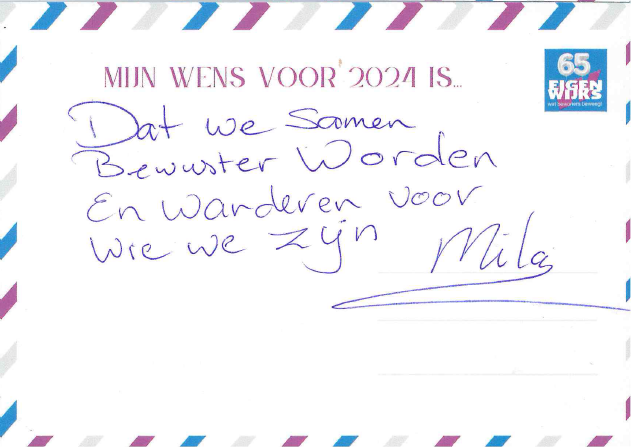 MIJN WENS VOOR 2024 IS...
65
EIGEN
WIJKS
wat bewoners beweegt
Dat we Samen
Bewuster Worden
En Warderen voor
Wie we zijn
Mila